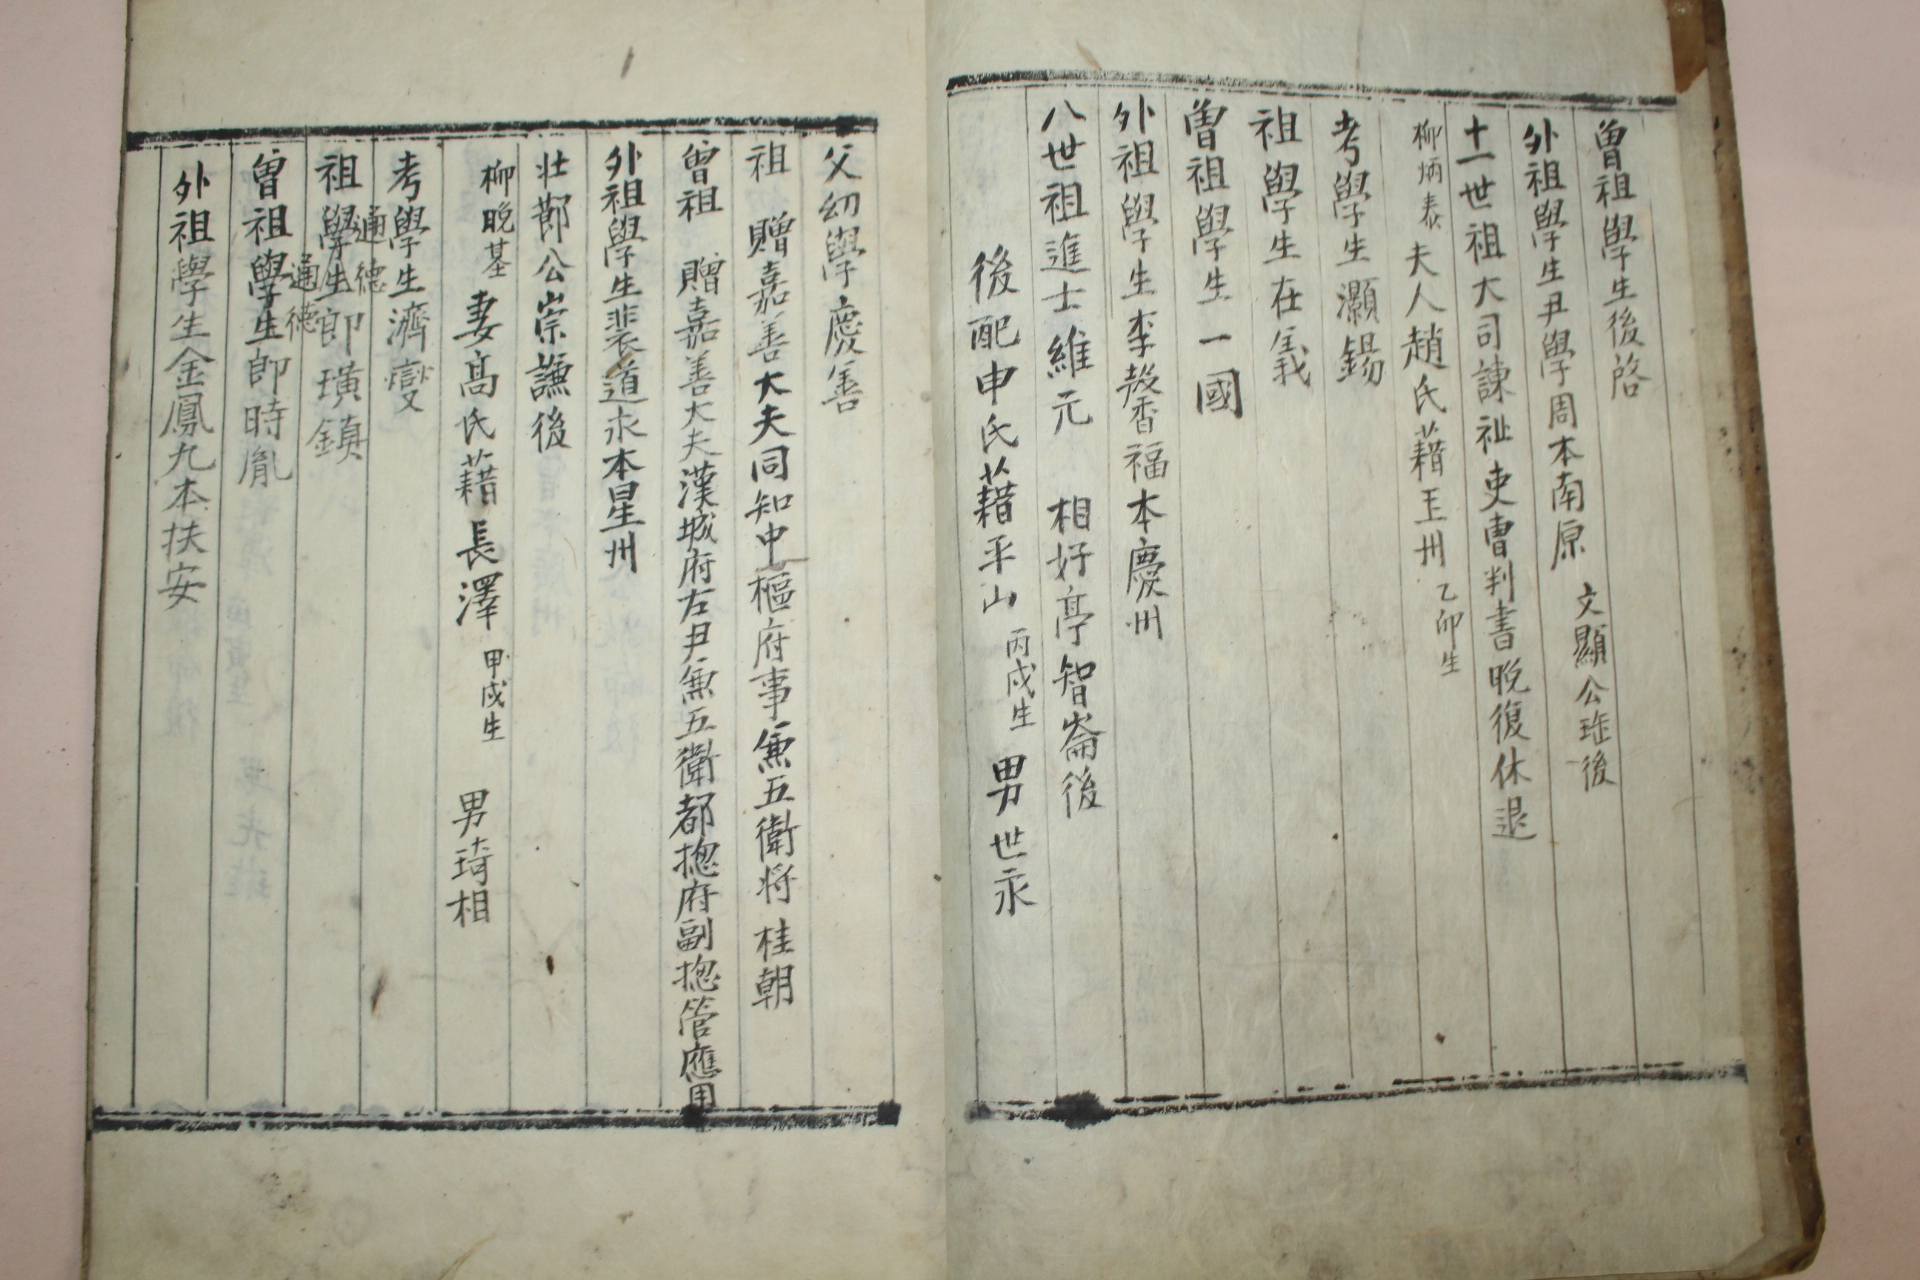 曾祖學生後啓
外祖學生尹學周本南原 文顯公珽後
十一世祖大司諫祉吏曹判書晩復休退
柳炳泰夫人趙氏藉玉州 乙卯生
考學生灝錫
祖學生在義
曾祖學生一國
外祖學生李馨福本慶州
八世祖進士維元 相好亭智崙後
後配申氏藉平山 丙戌生 男世永
父幼學慶善
祖 贈嘉善大夫同知中樞府事兼五衛將桂朝
曾祖 贈嘉善大夫漢城府左尹兼五衛都摠府副摠管應周
外祖學生裵道永本星州
壯節公崇謙後
柳晩基妻高氏藉長澤 甲戌生 男琦相
考學生濟燮
祖學生通德郎璜鎮
曾祖學生通德郎時胤
外祖學生金鳳九本扶安